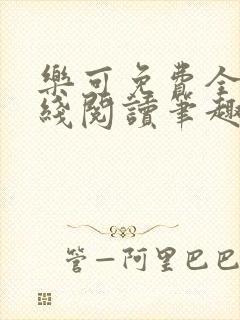 樂可免費全
綫閱讀筆趣
管—阿里巴巴